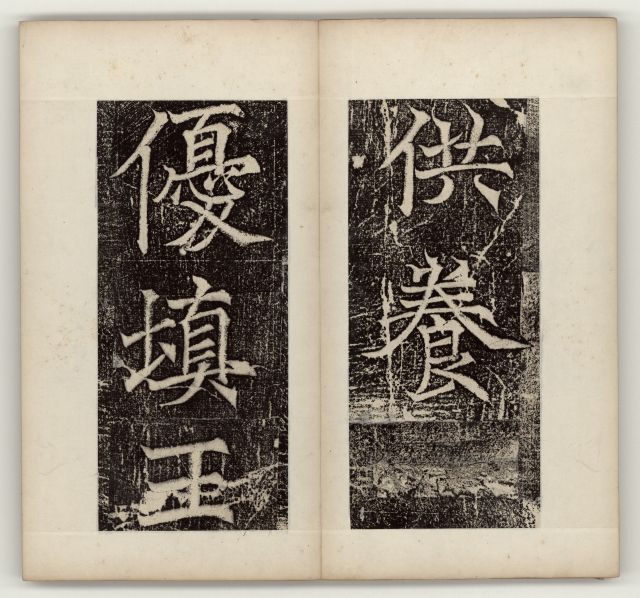 供養
優填王